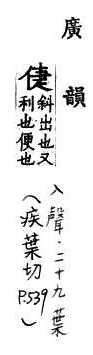 廣韻
倢
斜出也又
利也便也
入聲.二十九葉
(疾葉切
P.539)